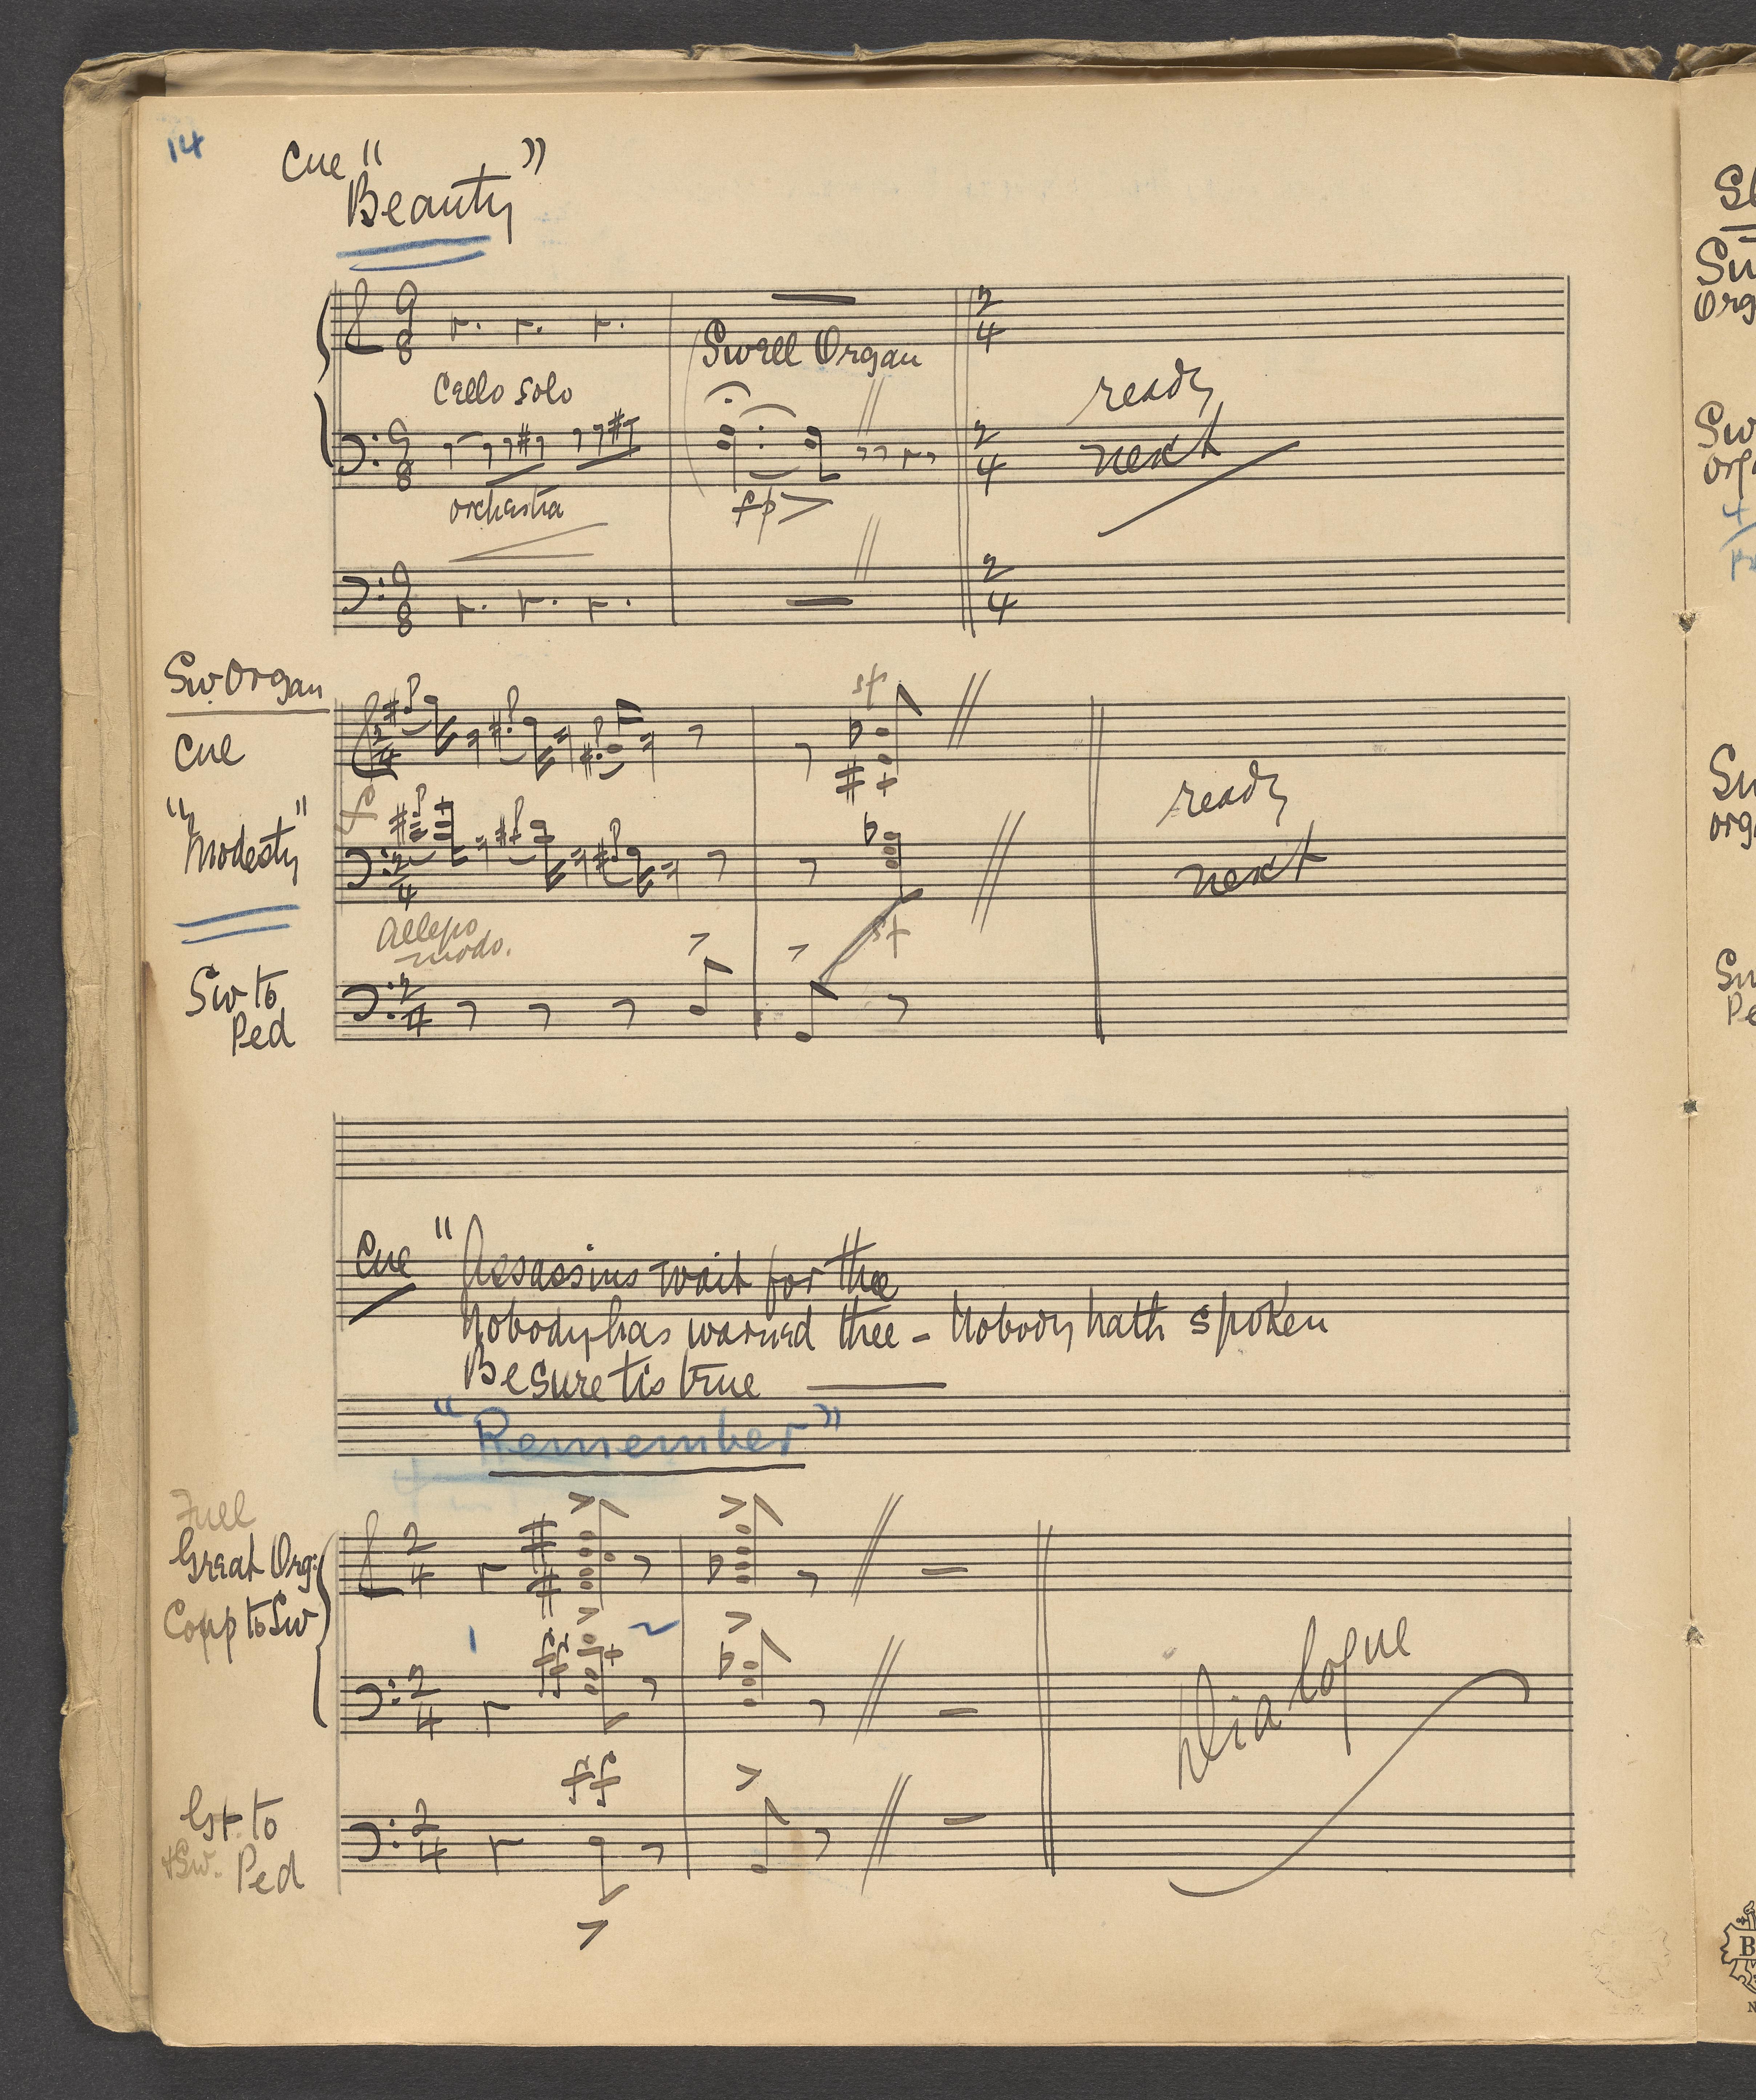 14
Cue "
Beauty"
9
8
Swell Organ
2
4
Cello solo
9
8
2
4
ready
next
orchestra
fp
9
8
2
4
Sw. Organ
Cue
"Modesty"
sf
2
4
f
2
4
ready
next
Allegro
modo.
sf
Sw to
Ped
2
4
Cue "Assassins wait for thee
Nobody has warned thee - Nobody hath spoken
Be sure tis true
"Remember"
Full
Great Org:
Copp to Sw
2
4
ff
2
4
Dialogue
ff
Gt. to
+Sw. Ped
2
4
Sw
Org
Sw
org
Sw
org
Sw
Pe
B
N